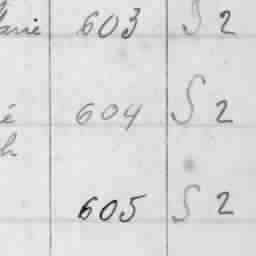 603 S 2
é 604 S 2
605 S 2